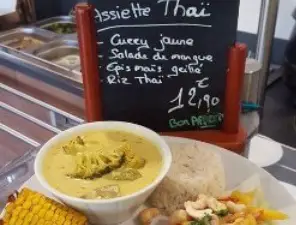 Assiette Thaï
- Curry jaune
- Salade de mangue
- Epis maïs grillé
- Riz Thaï
12,90 €
Bon Appétit